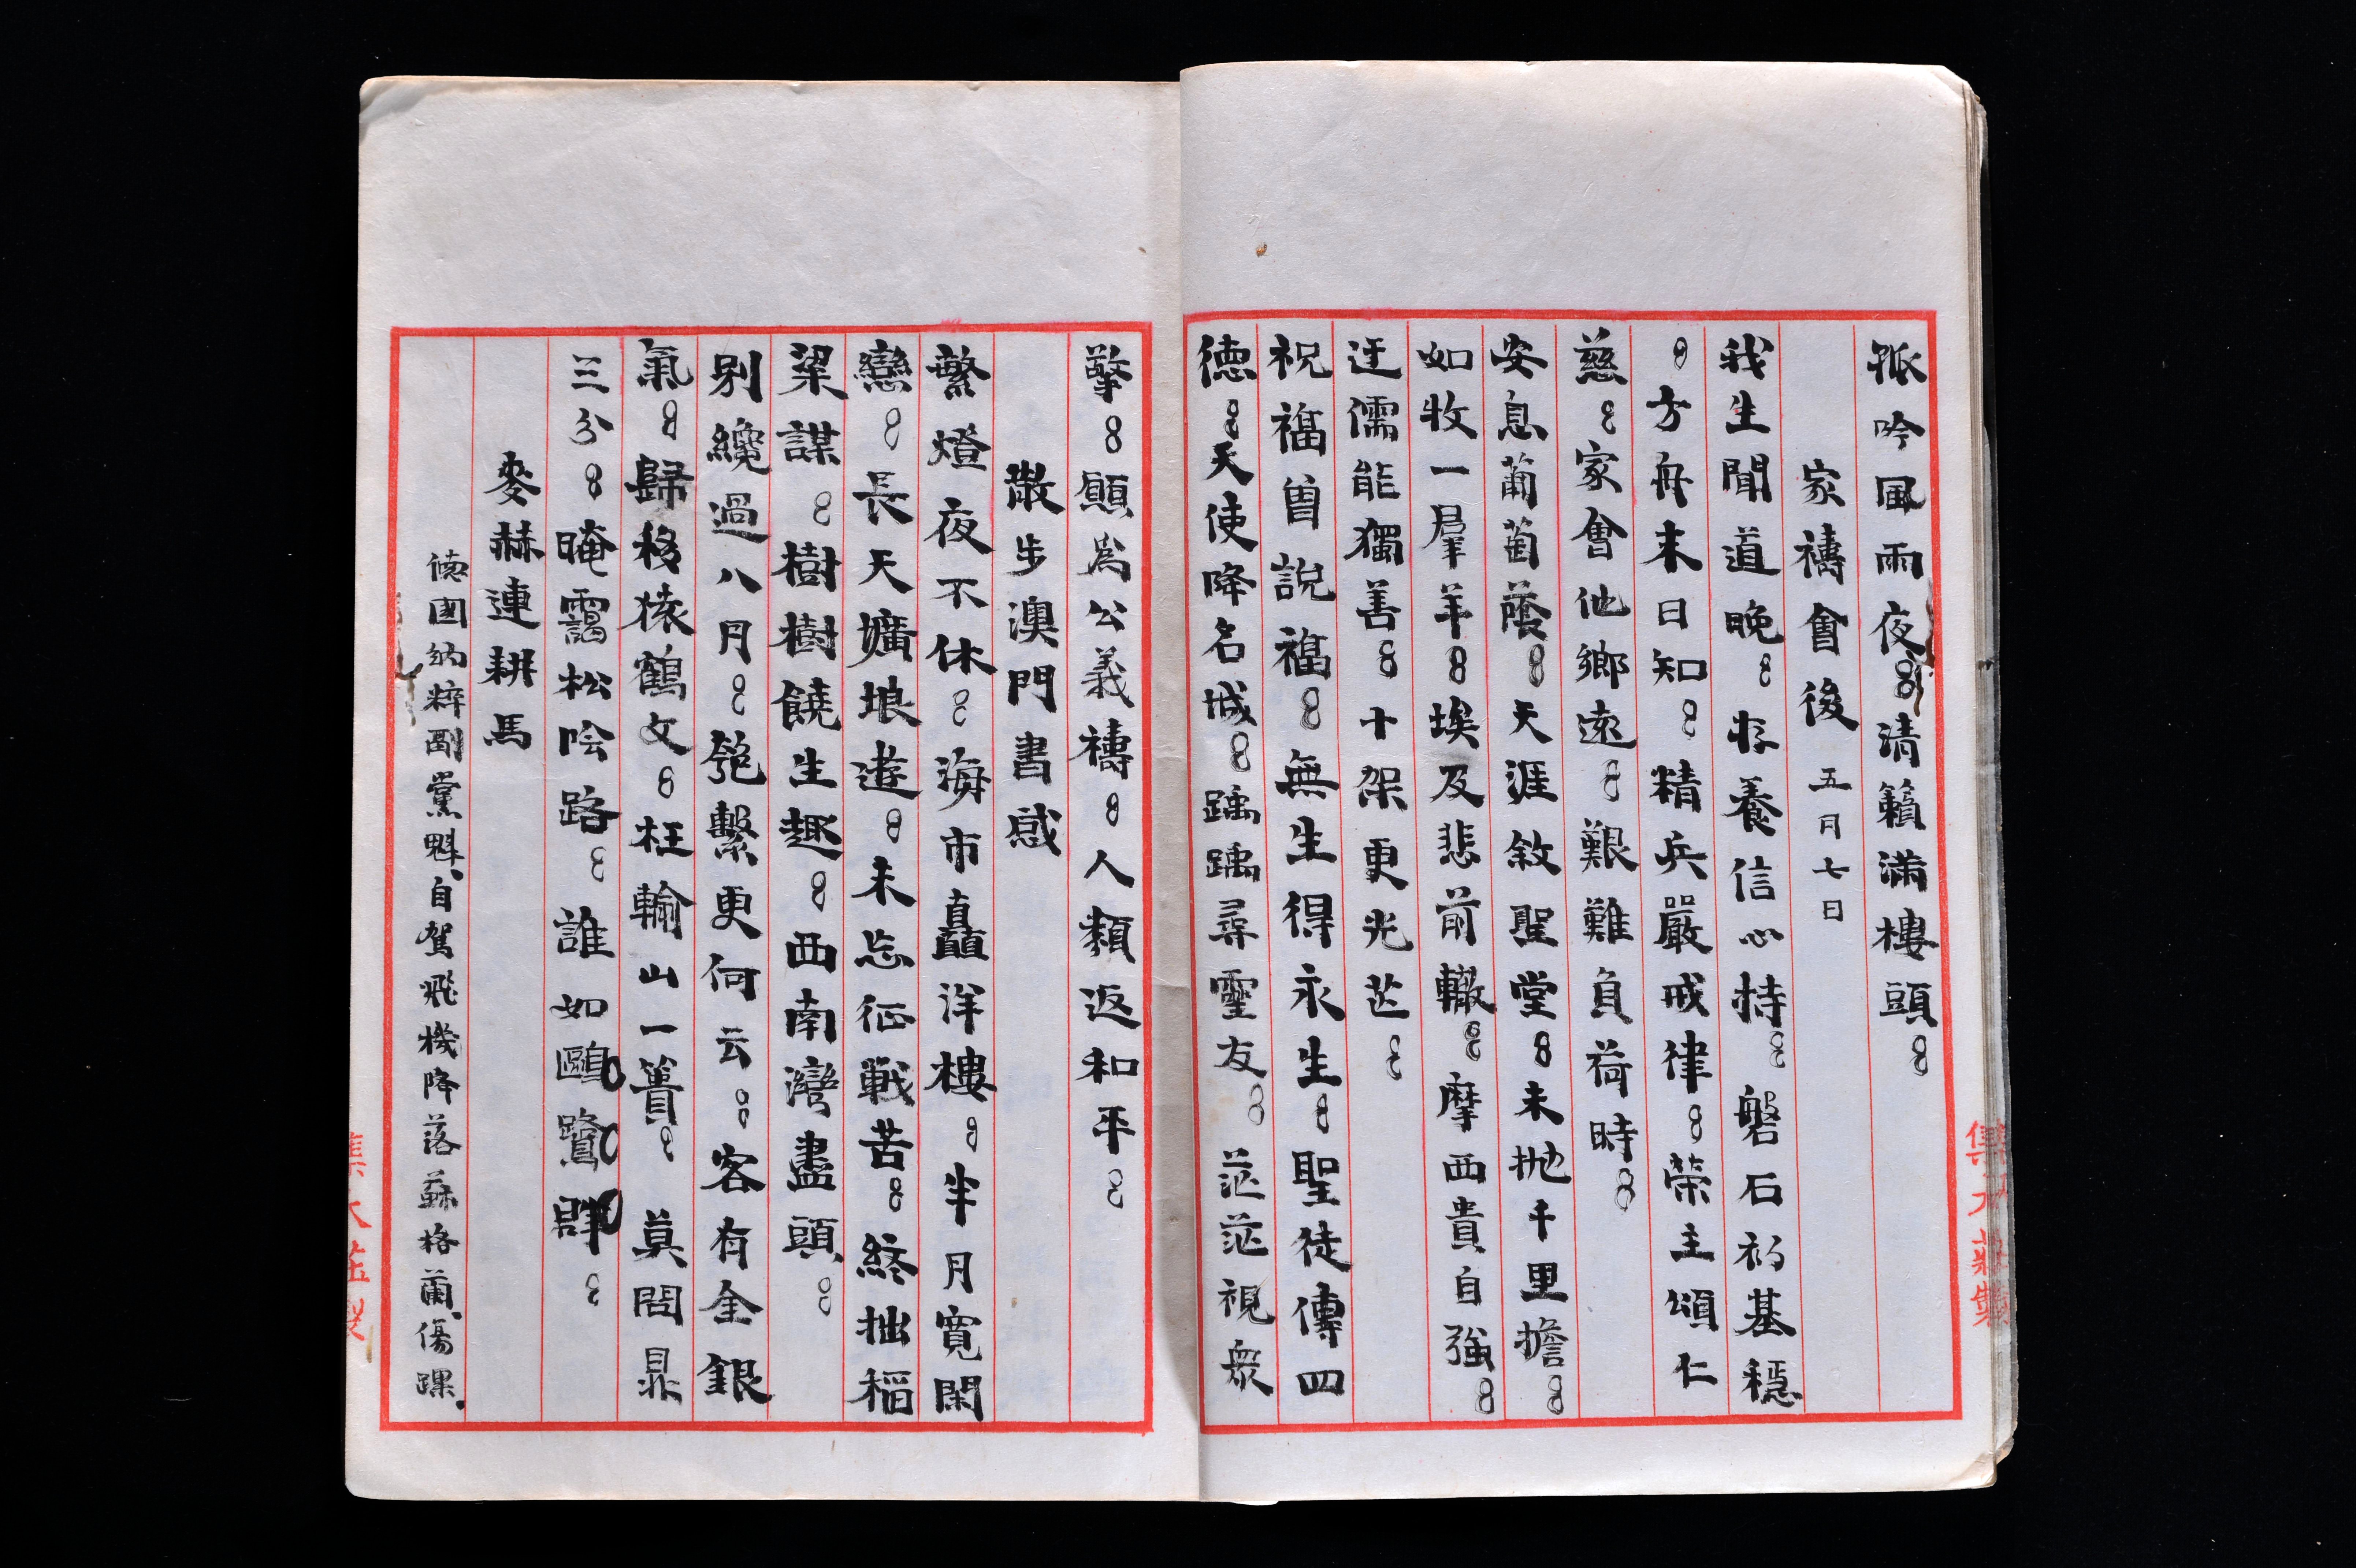 孤吟風雨夜。清籟滿樓頭。
家禱會後 五月七日
我生聞道晚。存養信心持。磐石初基穩
。方舟來日知。精兵嚴戒律。榮主頌仁
慈。家會他鄉遠。艱難負荷時。
安息葡萄蔭。天涯敘聖堂。未拋千里擔。
如牧一羣羊。埃及悲前轍。摩西貴自強。
迂儒能獨善。十架更光芒。
祝福曾說福。無生得永生。聖徒傳四
德。天使降名城。踽踽尋靈友。茫茫視衆
擎。願為公義禱。人類返和平。
散步澳門書感
繁燈夜不休。海市矗洋樓。半月寬閑
戀。長天壙埌遊。未忘征戰苦。終拙稻
粱謀。樹樹饒生趣。西南灣盡頭。
别纔過八月。匏繫更何云。客有金銀
氣。歸移猿鶴文。枉輸山一簣。莫問鼎
三分。晻靄松唫路。誰如鷗鷺群。
麥赫連耕馬
德國納粹副黨魁、自駕飛機降落蘇格蘭、傷踝.
集大莊製
集大莊製